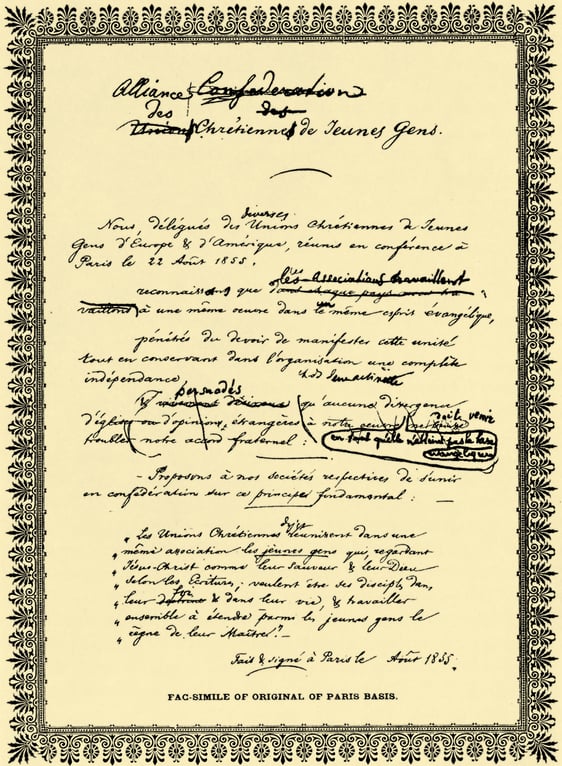 Alliance Confédération
des des
Unions Chrétiennes de Jeunes Gens.
diverses
Nous, délégués des Unions Chrétiennes de Jeunes
Gens d'Europe & d'Amérique, réunis en conférence à
Paris le 22 Août 1855,
les Associations travaillent
reconnaissant que chaque pays
vaillons à une même oeuvre dans le même esprit évangélique,
pénétrés du devoir de manifester cette unité
tout en conservant dans l'organisation une complète
indépendance
persuadés
& vivement désireux qu'aucune divergence
doit venir
d'église ou d'opinions, étrangères à notre oeuvre ne
en tant qu'elle n'atteint pas la base
troubler notre accord fraternel :
évangélique
- Proposons à nos sociétés respectives de s'unir
en confédération sur ce principe fondamental : —
„ Les Unions Chrétiennes réunissent dans une
„ même association les jeunes gens qui, regardant
„ Jésus-Christ comme leur Sauveur & leur Dieu
„ selon les Ecritures, veulent être ses disciples dans
foi
„ leur doctrine & dans leur vie, & travailler
„ ensemble à étendre parmi les jeunes gens le
„ règne de leur Maître." —
Fait & signé à Paris le Août 1855.
FAC-SIMILE OF ORIGINAL OF PARIS BASIS.